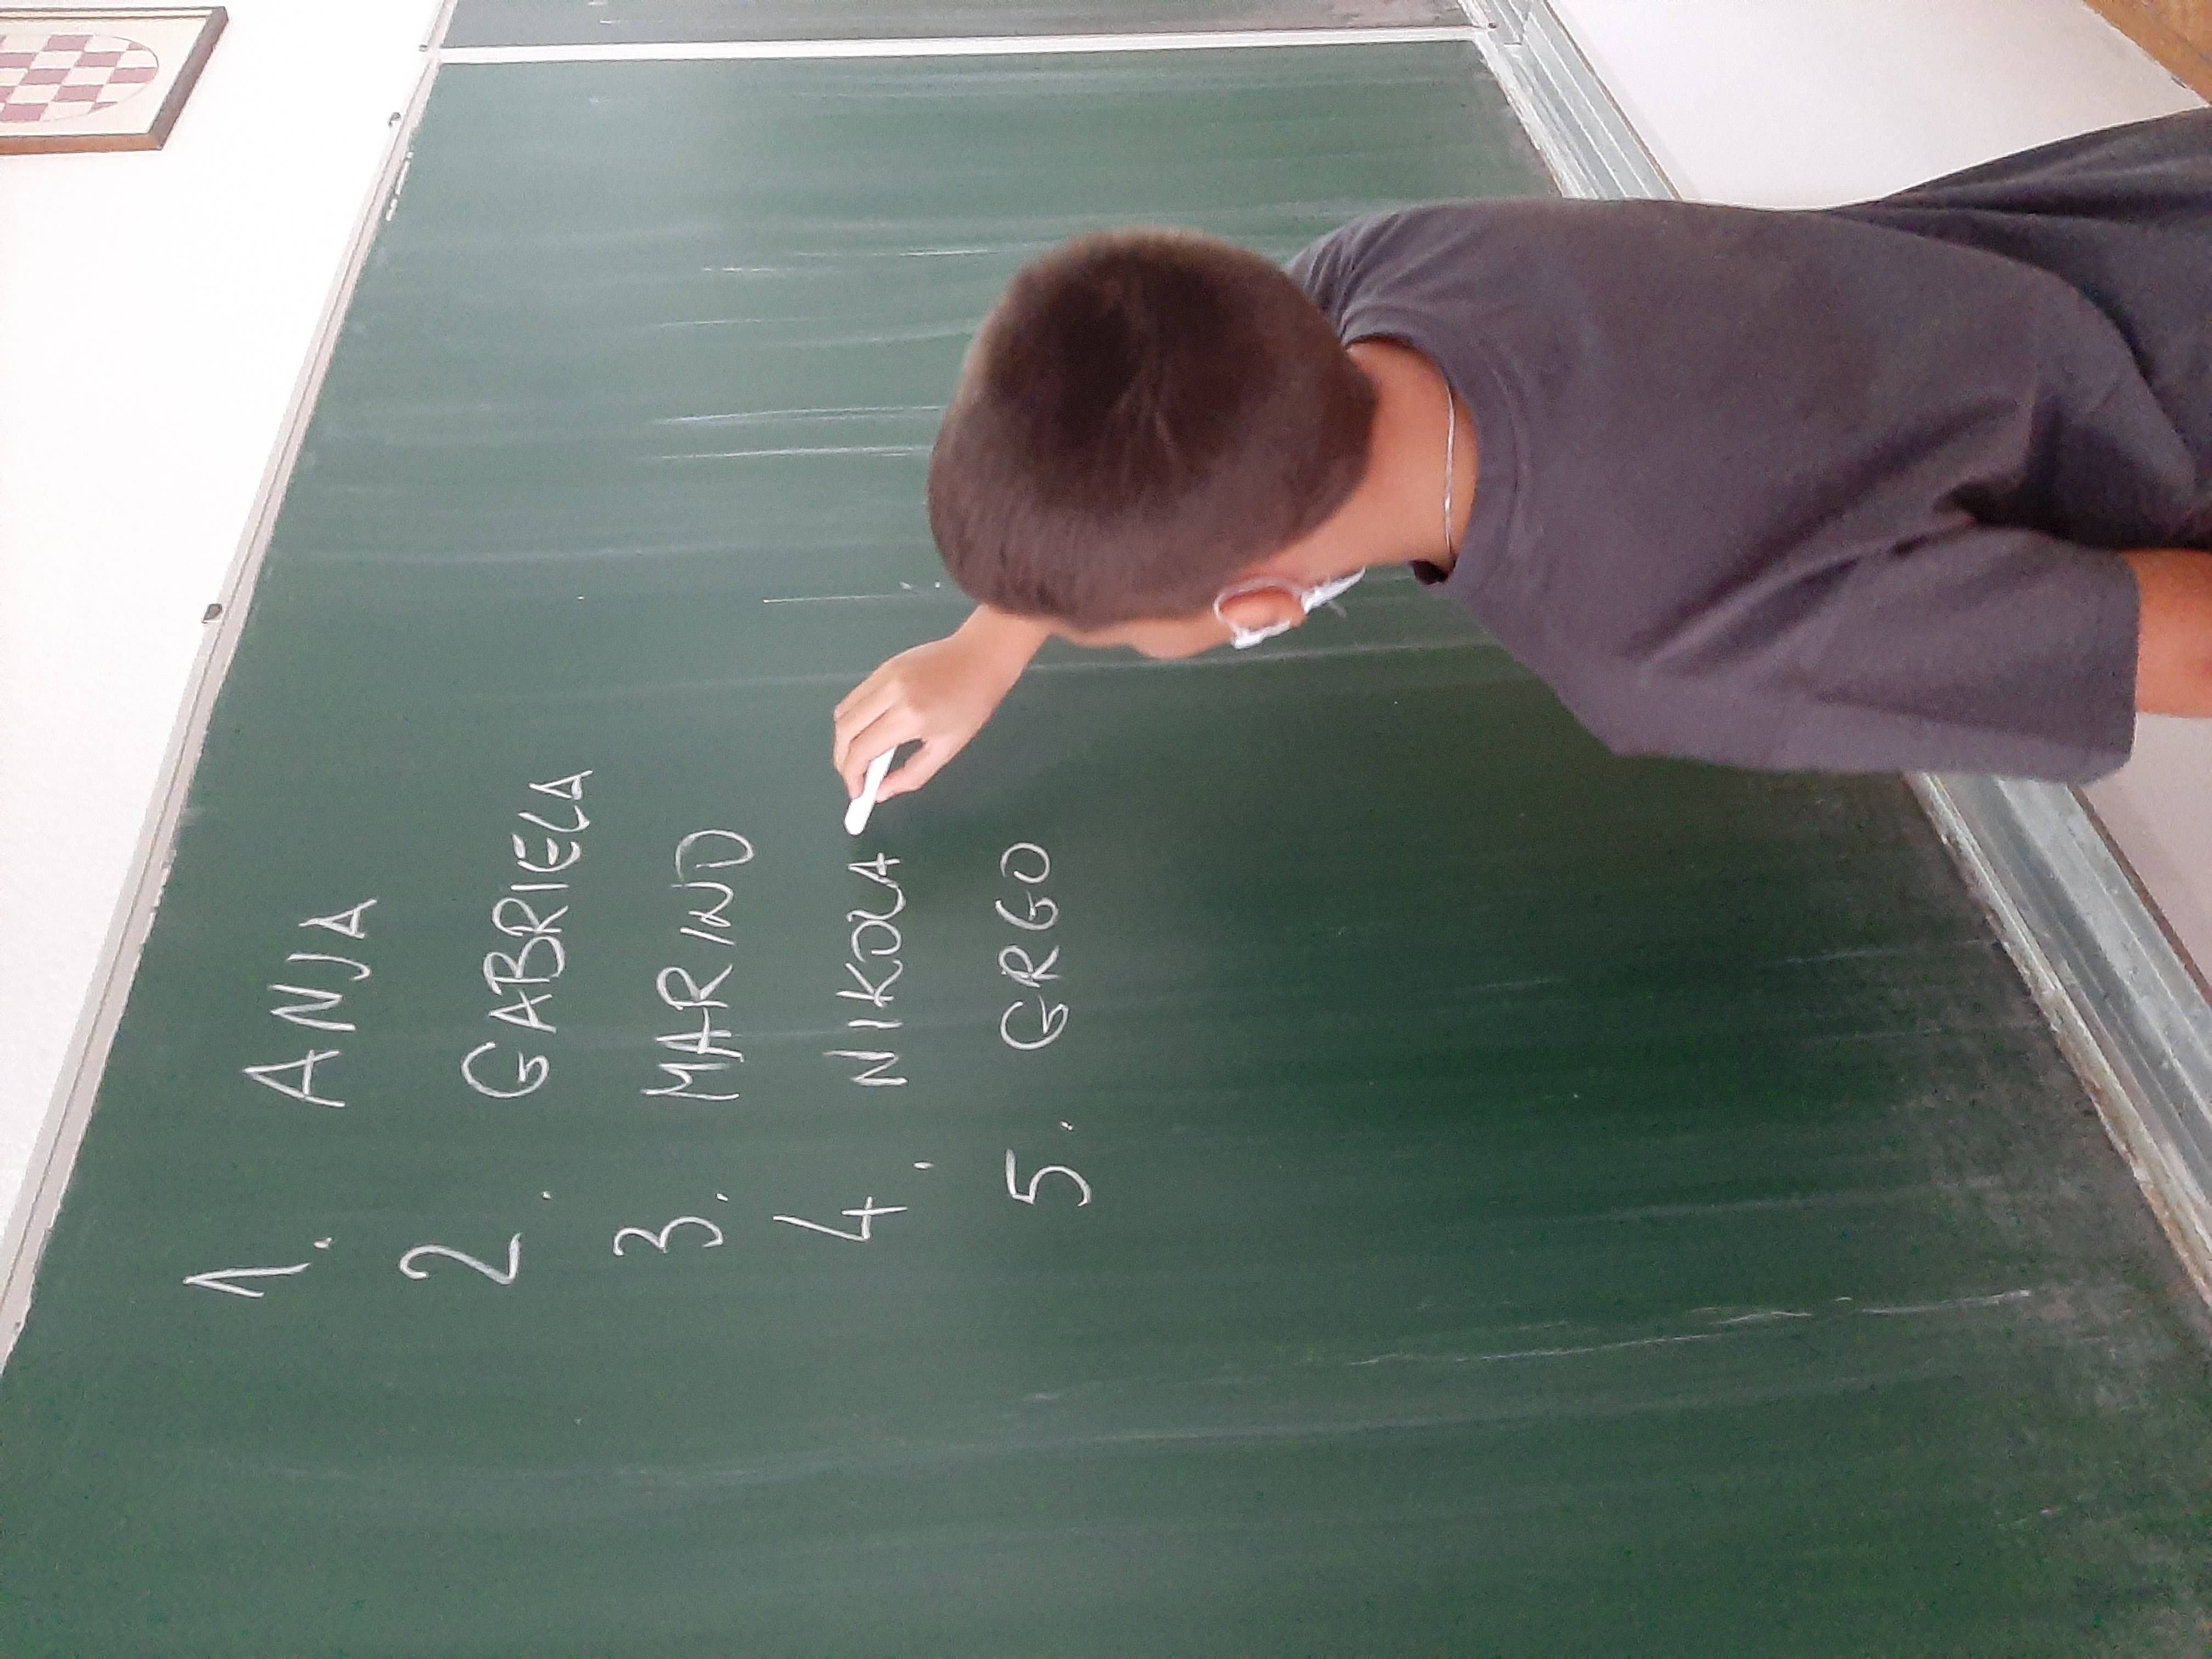 1. ANJA
2. GABRIELA
3. MARINO
4. NIKOLA
5. GRGO